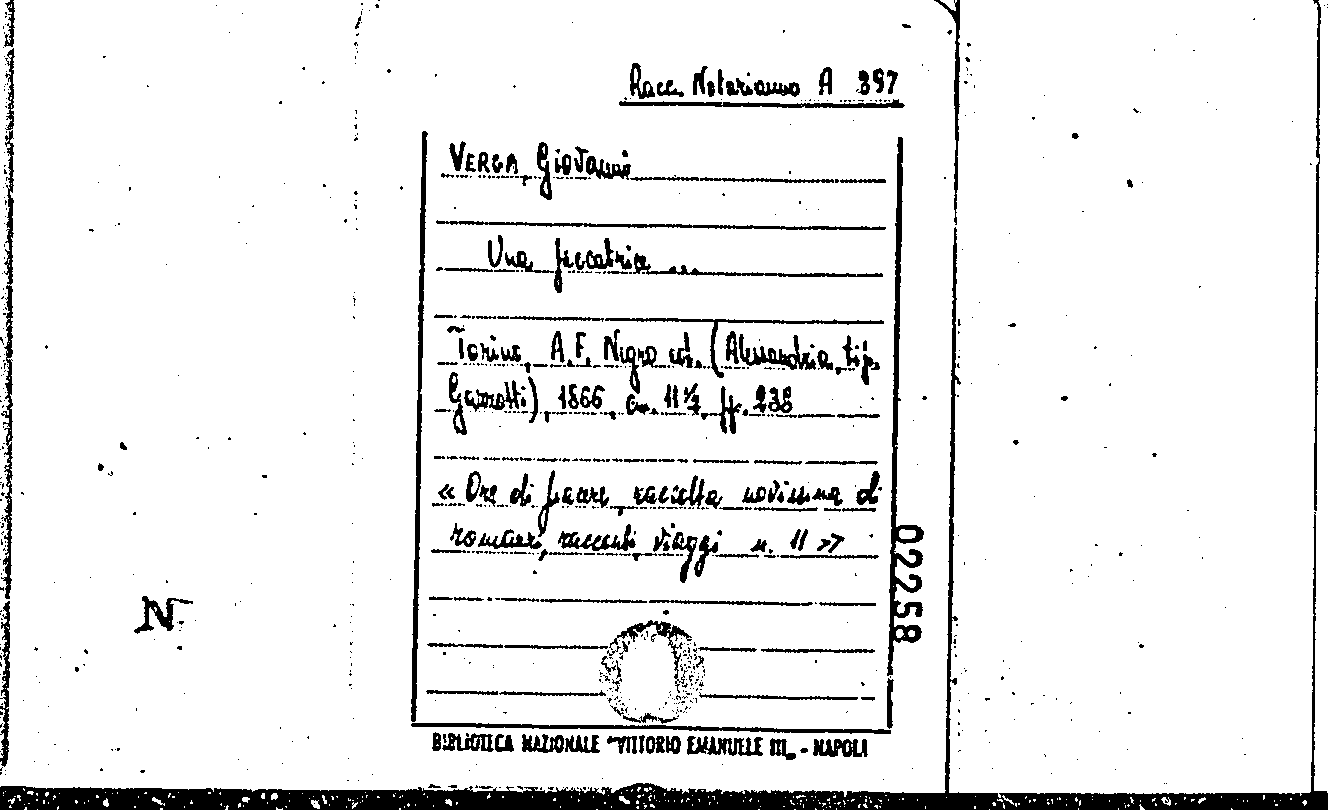 Racc. Notarianno A 397
VERGA, Giovanni
Una peccatrice ...
Torino, A.F. Negro ed. (Alessandria, tip.
Gazzotti), 1866, cm. 11½, pp. 238
« Ore di piacere, raccolta novissima di
romanzi, racconti, viaggi n. 11 »
02258
N.
BIBLIOTECA NAZIONALE "VITTORIO EMANUELE III„ - NAPOLI